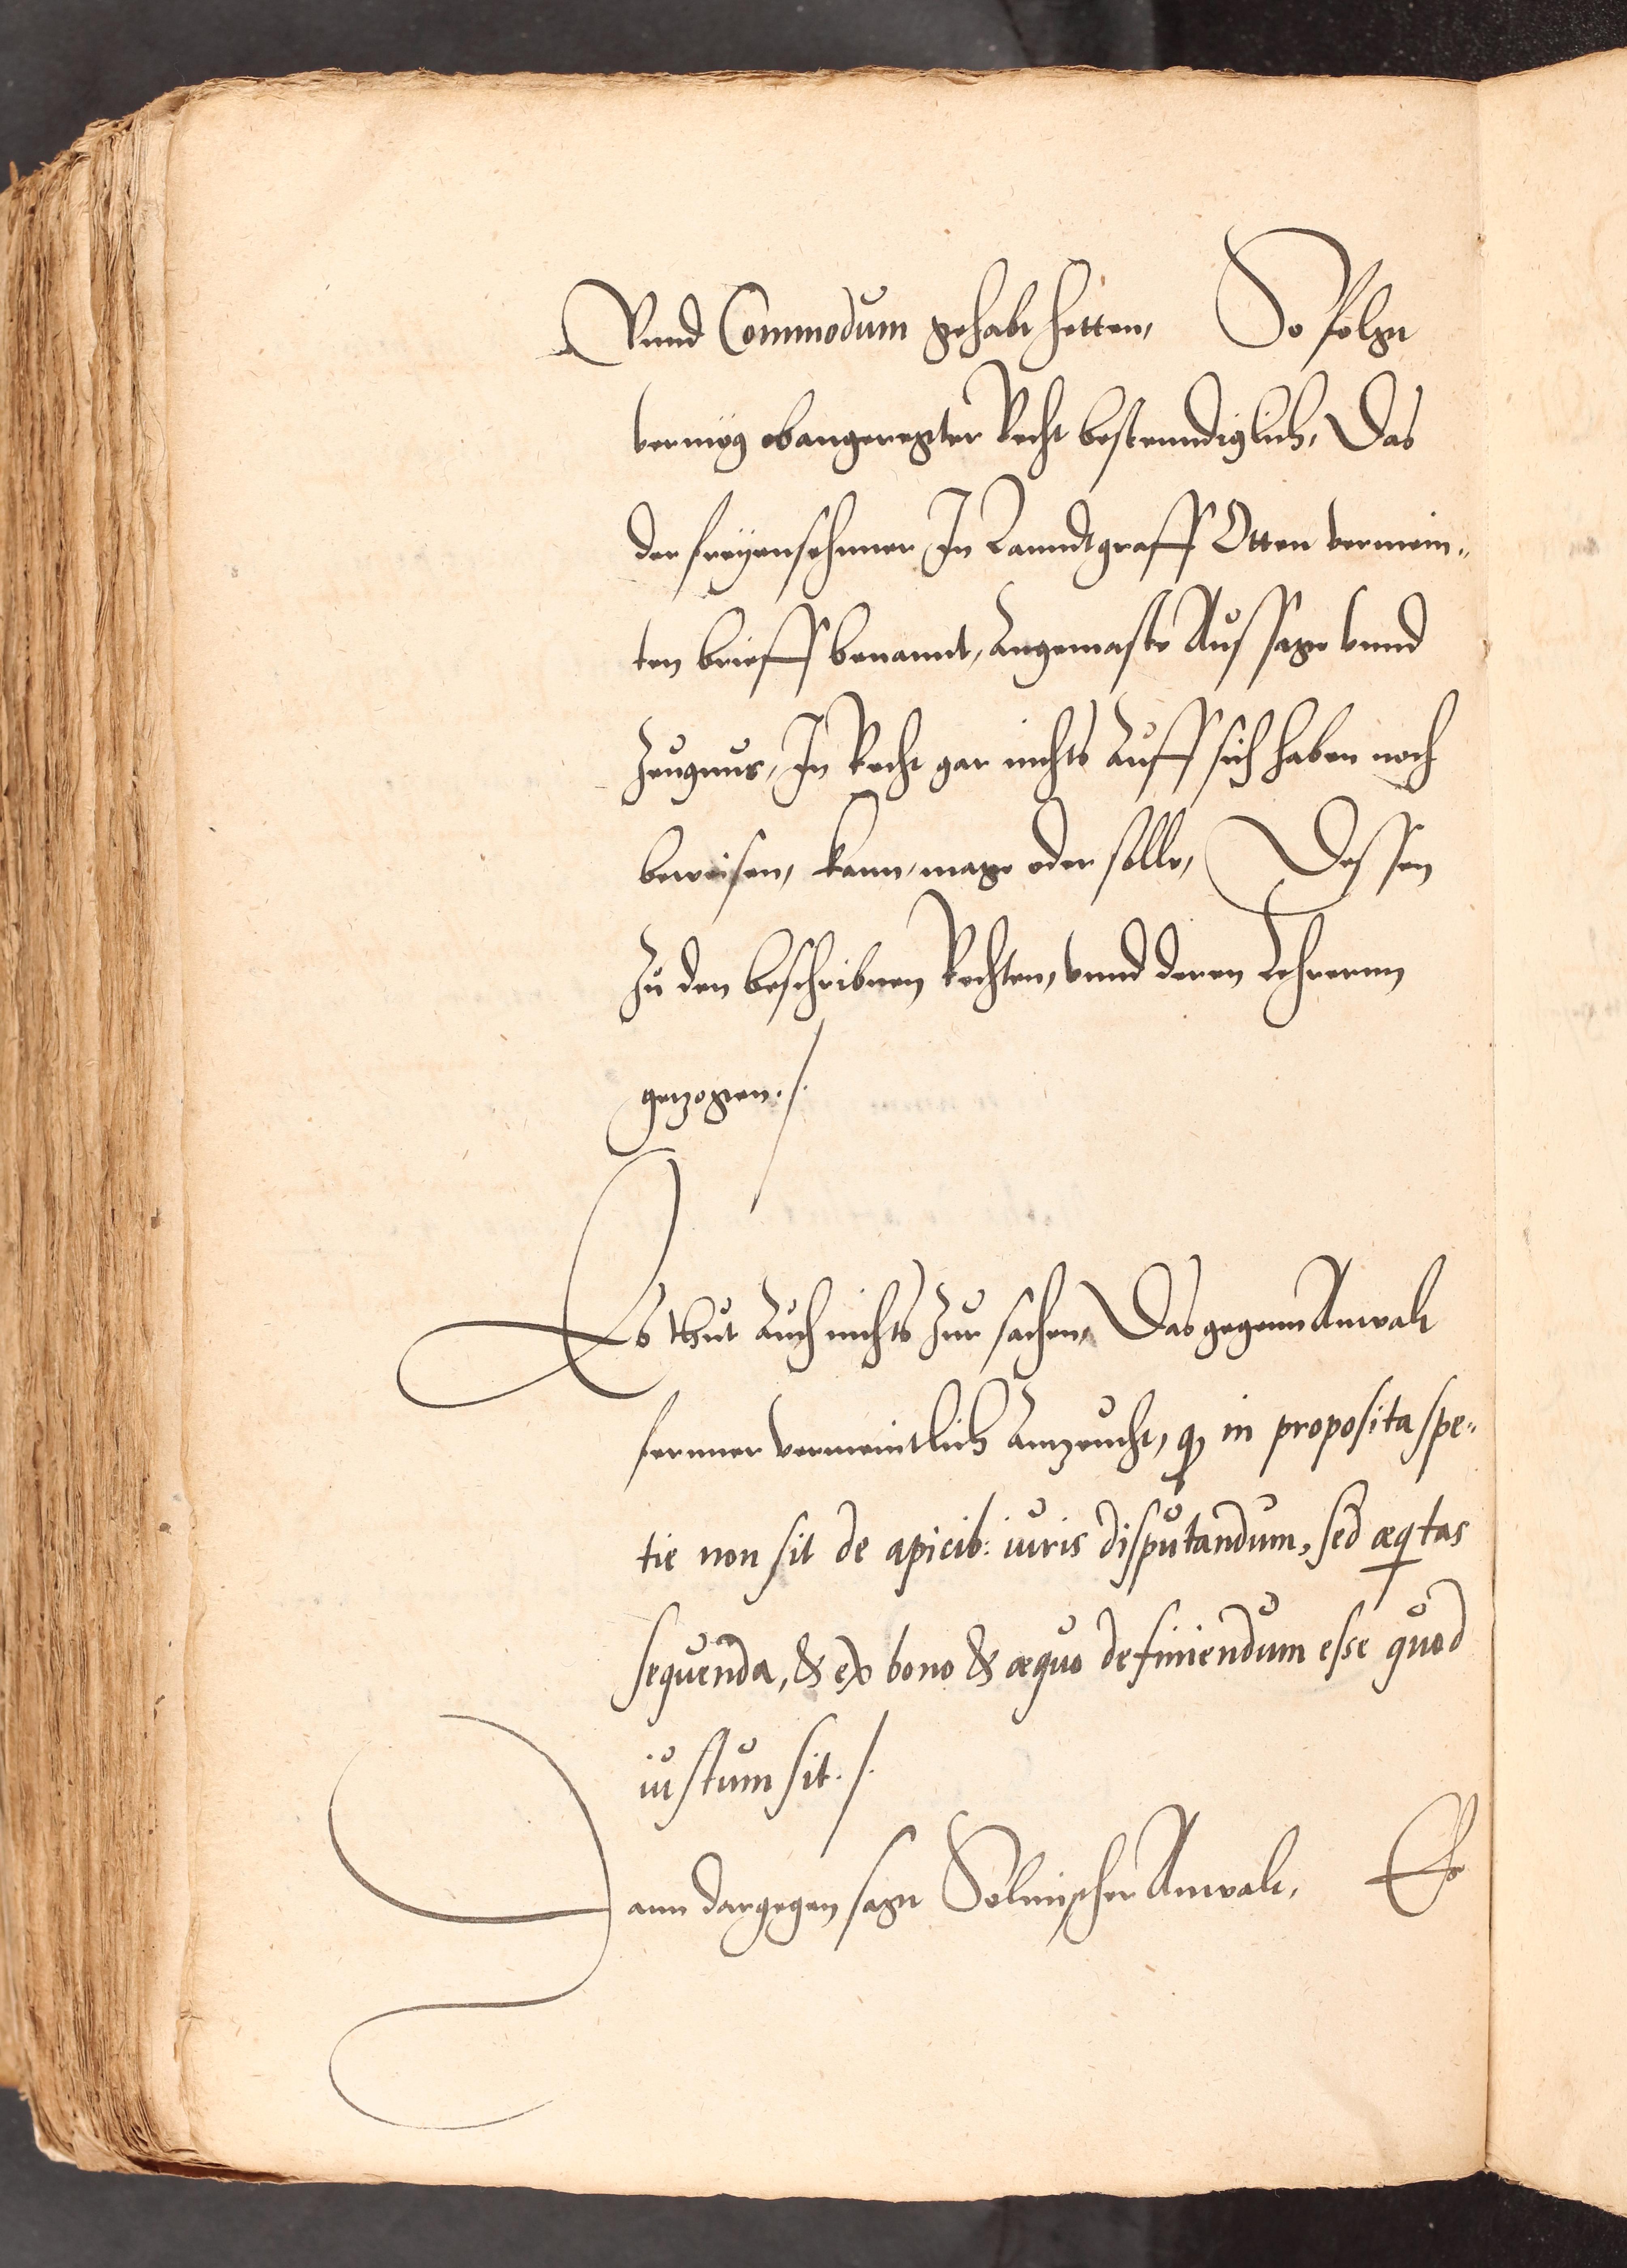 Vnnd Commodum gehabt hetten, So folgt
vermög obangeregter Recht bestenndiglich, Das
der freyenschemer In Lanndtgraff Otten vermein„
ten brieff benannt, Angemaste Aussage vnnd
Zeugnus, In Recht gar nichts Auff sich haben noch
beweisen, kann, mage oder solle, Dessen
Zu den beschribnen Rechten, vnnd deren Lehrernn
getzogen ./.
Es thut Auch nichts Zur sachen, Das gegenn Anwalt
fernner vermeintlich Anzeucht, q in proposita spe„
tie non sit de apicib: iuris disputandum, sed æqtas
sequenda, & ex bono & æquo definiendum esse quod
iustum sit ./.
Dann dargegen sagt Solmischer Anwalt, Es